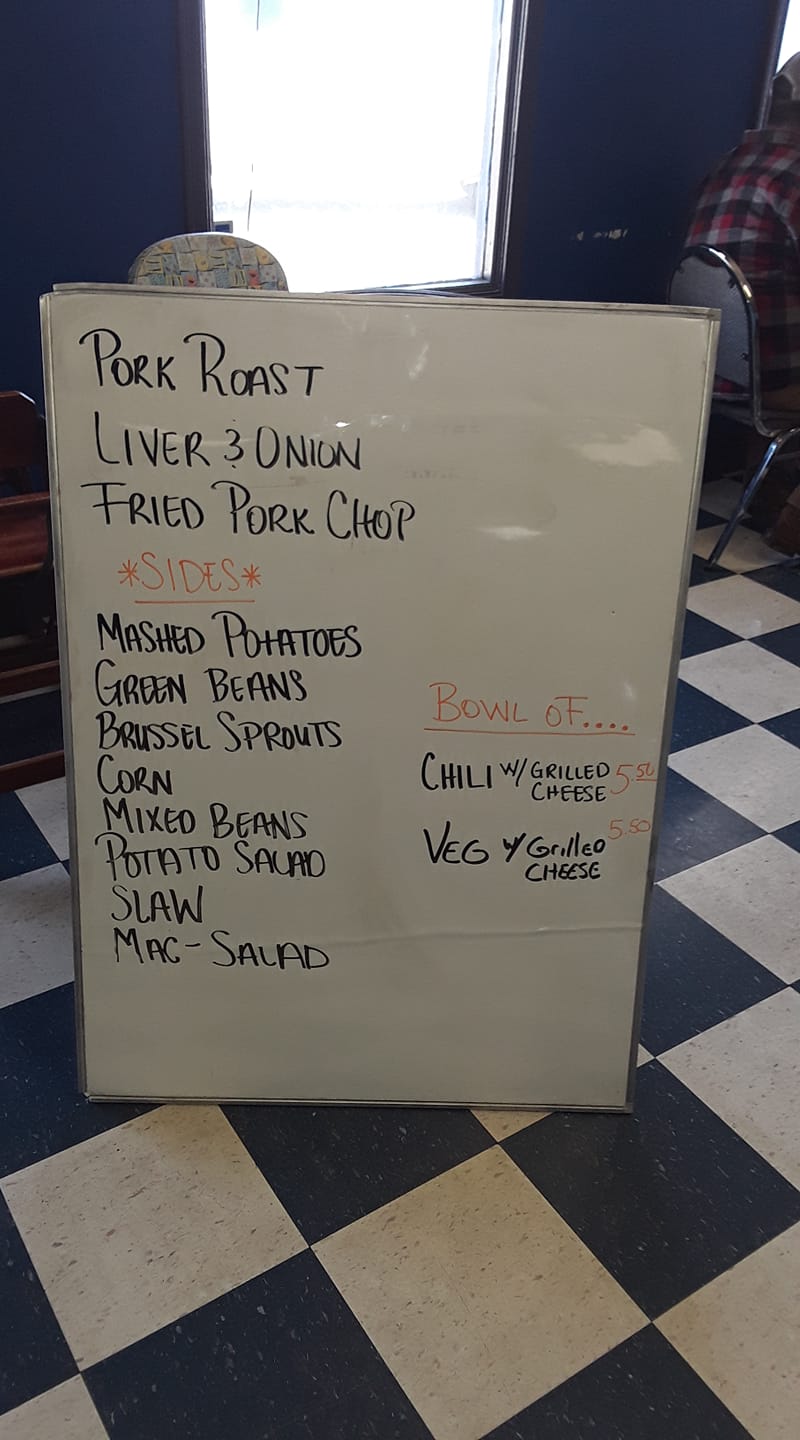 PORK ROAST
LIVER & ONION
FRIED PORK CHOP
*SIDES*
MASHED POTATOES
GREEN BEANS
BRUSSEL SPROUTS
CORN
MIXED BEANS
POTATO SALAD
SLAW
MAC-SALAD
BOWL OF....
CHILI W/ GRILLED 5.50
CHEESE
VEG W/ GrilleD 5.50
CHEESE